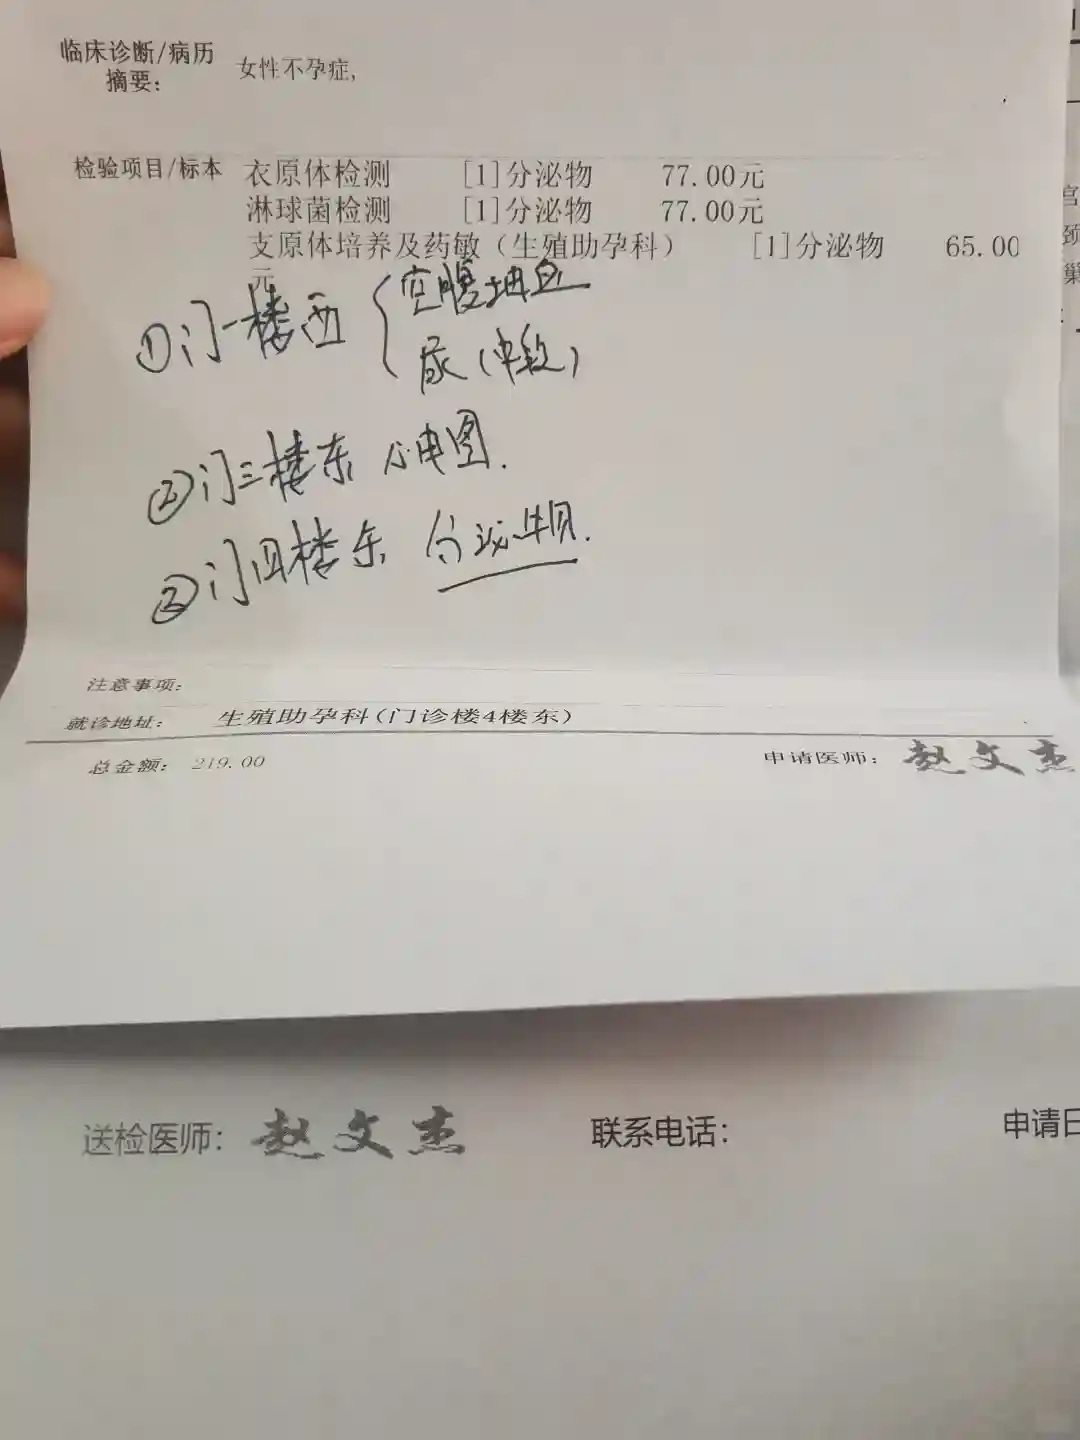 临床诊断/病历
摘要:
女性不孕症,
检验项目/标本
衣原体检测 [1]分泌物 77.00元
淋球菌检测 [1]分泌物 77.00元
支原体培养及药敏(生殖助孕科) [1]分泌物 65.00
元
①门一楼西 空腹抽血
尿(中段)
②门三楼东 心电图.
③门四楼东 分泌物.
注意事项:
就诊地址: 生殖助孕科(门诊楼4楼东)
总金额: 219.00 申请医师: 赵文杰
送检医师: 赵文杰 联系电话: 申请日
宫
颈
巢